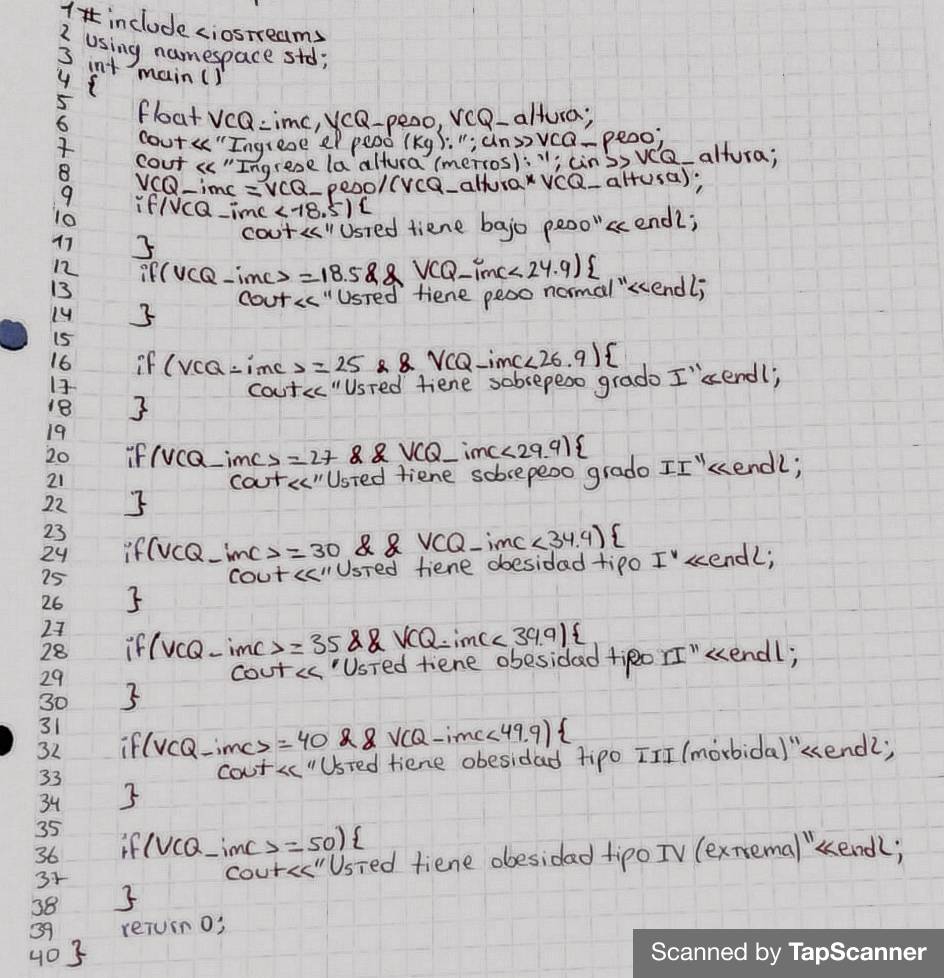 1 #include <iostream>
2 using namespace std;
3 int main()
4 {
5
6 float VCQ_imc, VCQ_peso, VCQ_altura;
7 cout<<"Ingrese el peso (Kg): "; cin>>VCQ_peso;
8 cout << "Ingrese la altura (metros): "; cin>>VCQ_altura;
9 VCQ_imc = VCQ_peso/(VCQ_altura*VCQ_altura);
10 if(VCQ_imc <18.5){
cout<<"Usted tiene bajo peso"<<endl;
11 }
12 if(VCQ_imc>=18.5&& VCQ_imc<24.9){
13 cout<<"Usted tiene peso normal"<<endl;
14 }
15
16 if(VCQ_imc >=25 && VCQ_imc<26.9){
17 cout<<"Usted tiene sobrepeso grado I"<<endl;
18 }
19
20 if(VCQ_imc>=27 && VCQ_imc<29.9){
21 cout<<"Usted tiene sobrepeso grado II"<<endl;
22 }
23
24 if(VCQ_imc>=30 && VCQ_imc<34.9){
25 cout<<"Usted tiene obesidad tipo I"<<endl;
26 }
27
28 if(VCQ_imc>=35&& VCQ_imc<39.9){
29 cout<<"Usted tiene obesidad tipo II"<<endl;
30 }
31
32 if(VCQ_imc>=40 && VCQ_imc<49.9){
33 cout<<"Usted tiene obesidad tipo III (mórbida)"<<endl;
34 }
35
36 if(VCQ_imc>=50){
37 cout<<"Usted tiene obesidad tipo IV (extrema)"<<endl;
38 }
39 return 0;
40 }
Scanned by TapScanner